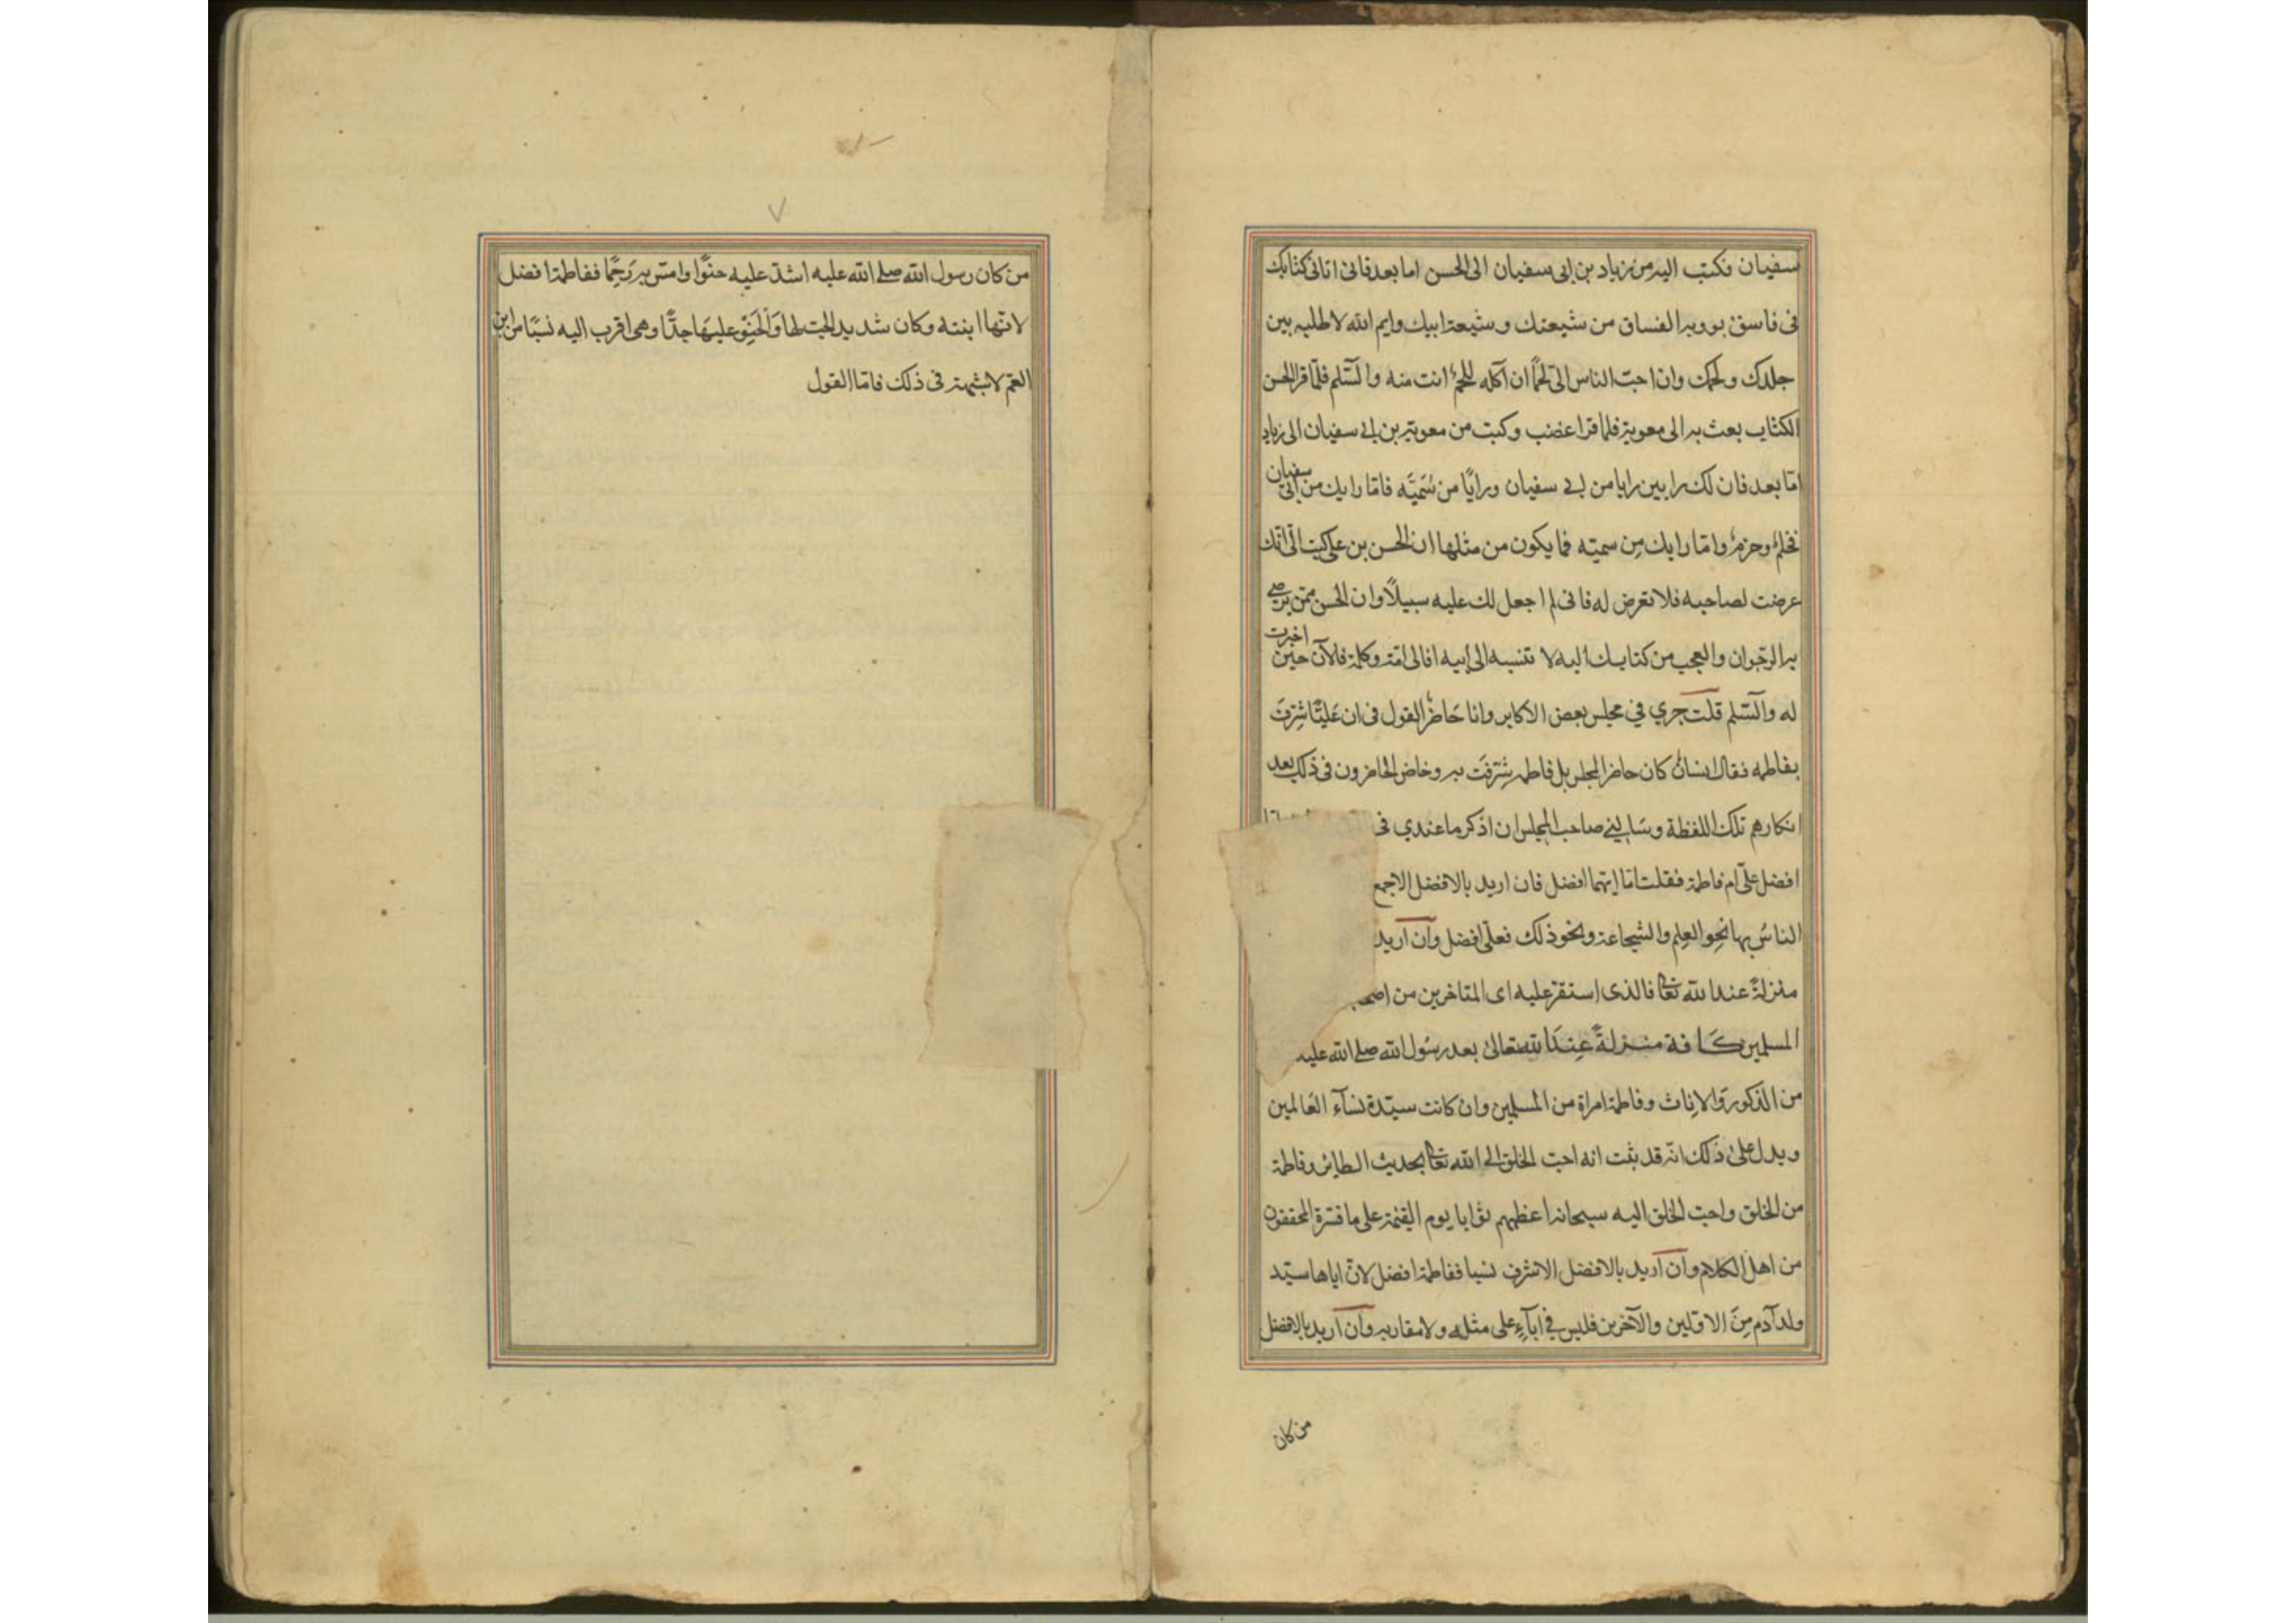 سفيان فكتب اليه من زياد بن ابى سفيان الى الحسن اما بعد فانى اتانى كتابك
فى فاسق يوويه الفساق من شيعتك وشيعة ابيك وايم الله لاطلبه بين
جلدك ولحمك وان احبّ الناس الىّ لحمًا ان آكله للحمٌ انت منه والسّلم فلمّا قرا الحسن
الكتاب بعث به الى معوية فلما قرا غضب وكتب من معوية بن ابي سفيان الى زياد
امّا بعد فان لك رايين رايا من ابي سفيان ورايًا من سُمَيَّه فامّا رايك من ابى سفيان
فحلمٌ وحزمٌ وامّا رايك مِن سميّه فما يكون من مثلها ان الحسن بن على كتب الىّ انّك
عرضت لصاحبه فلا تعرض له فانى لم اجعل لك عليه سبيلًا وان الحسن ممّن يرمى
به الرجوان والعجب من كتابك اليه لا تنسبه الى ابيه افالى امّه وكلته فالآن حين اخترت
له والسّلم قلت جري في مجلس بعض الاكابر وانا حَاضرٌ القول فى ان عَليًّا شرِفَ
بفاطمه فقال انسانٌ كان حاضر المجلس بل فاطمه شرِفَت به وخاض الحاضرون فى ذلك بعد
انكارهم تلك اللفظة وسَالني صاحب المجلس ان اذكر ما عندي فى
افضل علىّ ام فاطمة فقلت امّا ايّهما افضل فان اريد بالافضل الاجمع
الناسُ بها نحو العِلم والشجاعة ونحو ذلك فعلىّ افضل وان اريد
منزلةً عند الله تعالى فالذى استقرّ عليه راى المتاخرين من
المسلمين كَافة منزلةً عِندَ الله تعالىٰ بعد رسُول الله صلى الله عليه
من الذكور وَالاِناث وفاطمة امراة من المسلمين وان كانت سيّدة نسآء العَالمين
ويدل علىٰ ذلك انّه قد ثبت انه احبّ الخلق الى الله تعالى بحديث الطاير وفاطمة
من الخلق واحبّ الخلق اليه سبحانه اعظمهم ثوابا يوم القيمة على ما فسّره المحققون
من اهل الكلام وان اريد بالافضل الاشرف نسبا ففاطمة افضل لانّ اباها سيّد
ولد آدم مِنَ الاوّلين والآخرين فليس في ابآءِ على مثله ولا مقاربه وان اريد بالافضل
من كان
من كان رسول الله صلى الله عليه اشدّ عليه حنوًّا وامسّ به رَحِمًا ففاطمة افضل
لانّها ابنته وكان شديد الحبّ لها وَالحُنوِّ عليهَا جدًّا وهى اقرب اليه نسَبًا من ابن
العمّ لا شبهة فى ذلك فامّا القول